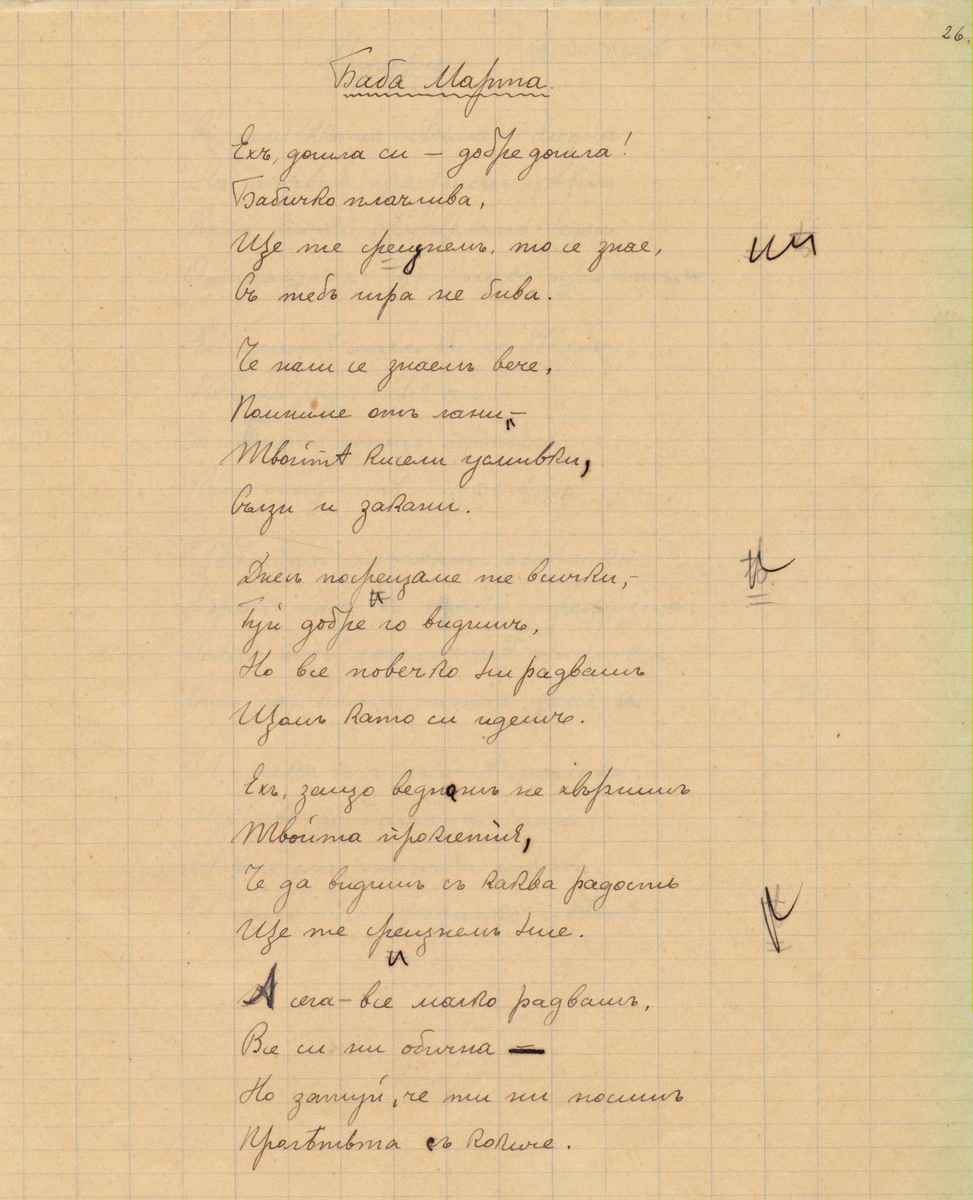 26.
Баба Марта.
Ехъ, дошла си — добре дошла!
Бабичко плачлива,
Ще те срещнемъ, то се знае,
Съ тебъ игра не бива.
Че нали се знаемъ вече,
Помниме отъ лани, —
Твойта кисели усмивки,
Сълзи и закани.
Днесь посрещаме те всички, —
Туй добре го видишъ,
Но все повечко ни радвашъ
Щомъ като си идешъ.
Ехъ, защо веднажъ не хвърлишъ
Твойта проклетия,
Че да видишъ съ каква радость
Ще те срещнемъ ние.
А сега — все малко радвашъ,
Все си ни обична —
Но затуй, че ти ни носишъ
Пролѣтьта съ кокиче.